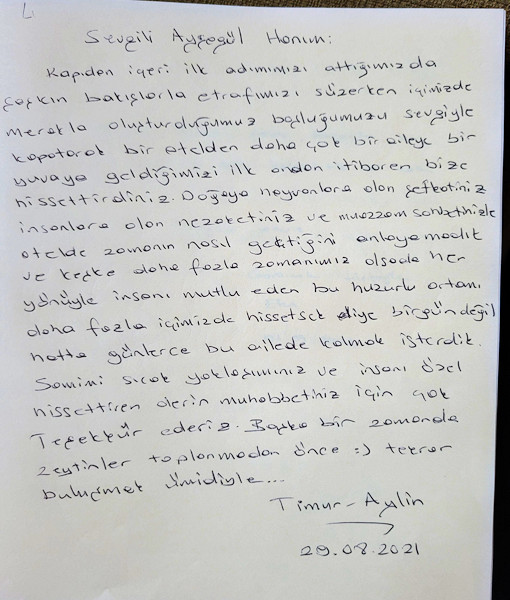 Sevgili Ayşegül Hanım:
Kapıdan içeri ilk adımımızı attığımızda
şaşkın bakışlarla etrafımızı süzerken içimizde
merakla oluşturduğumuz boşluğumuzu sevgiyle
kapatarak bir otelden daha çok bir aileye bir
yuvaya geldiğimizi ilk andan itibaren bize
hissettirdiniz. Doğaya hayvanlara olan şefkatiniz
insanlara olan nezaketiniz ve muazzam sohbetinizle
otelde zamanın nasıl geçtiğini anlayamadık
ve keşke daha fazla zamanımız olsada her
yönüyle insanı mutlu eden bu huzurlu ortamı
daha fazla içimizde hissetsek diye birgün değil
hatta günlerce bu ailede kalmak isterdik.
Samimi sıcak yaklaşımınız ve insanı özel
hissettiren derin muhabbetiniz için çok
Teşekkür ederiz. Başka bir zamanda
zeytinler toplanmadan önce :) tekrar
buluşmak ümidiyle...
Timur-Aylin
29.08.2021